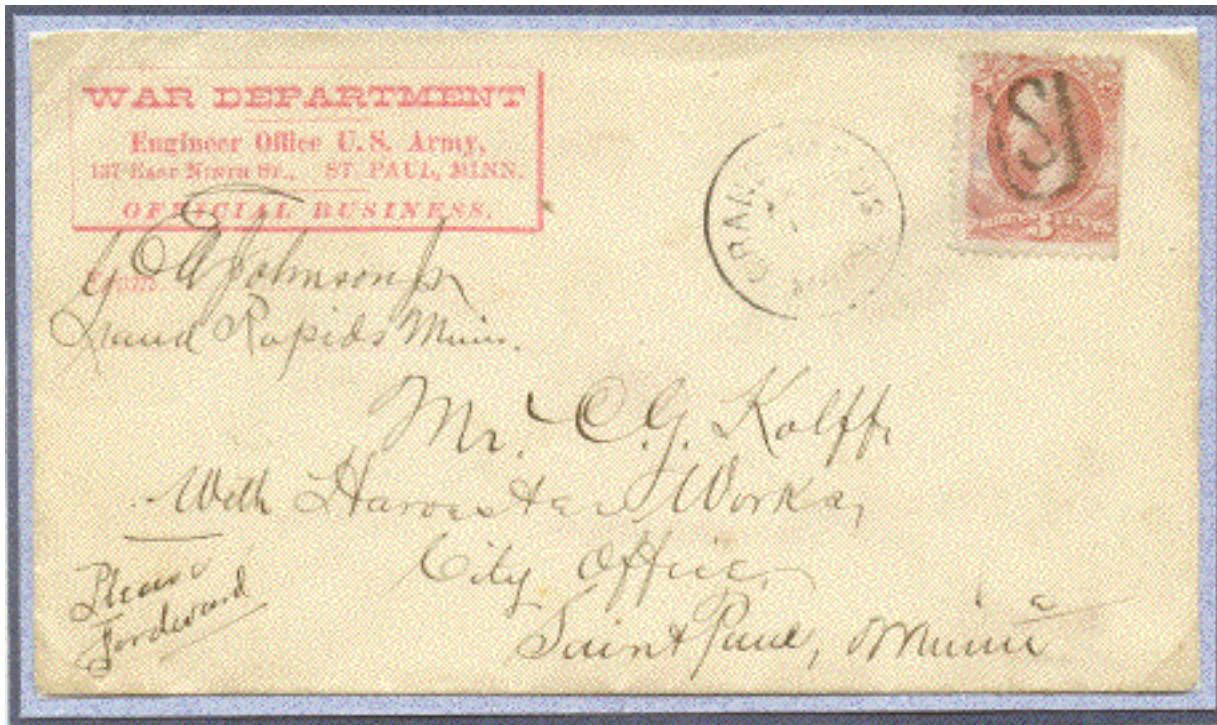 WAR DEPARTMENT
Engineer Office U.S. Army,
137 East Ninth St., ST. PAUL, MINN.
OFFICIAL BUSINESS.
From
Johnson Jr
Grand Rapids Minn.
Mr. C.G. Kolff,
With Harvester Works,
City Office,
Saint Paul, Minn
Please
Fordward
GRAND
3